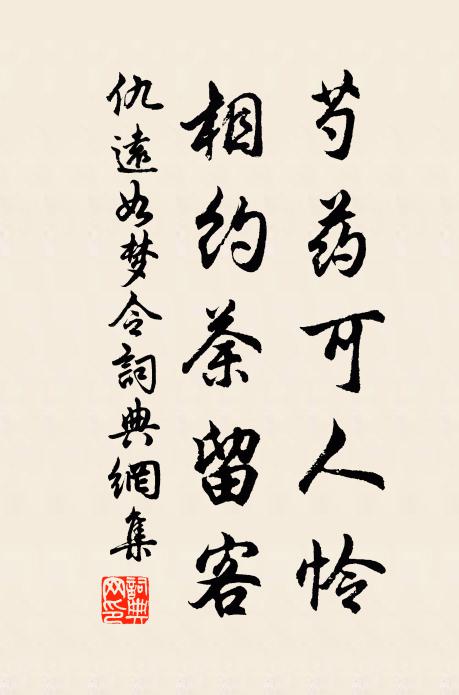 芍药可人怜
相约茶留客
仇远如梦令詞典網集
詞典网印